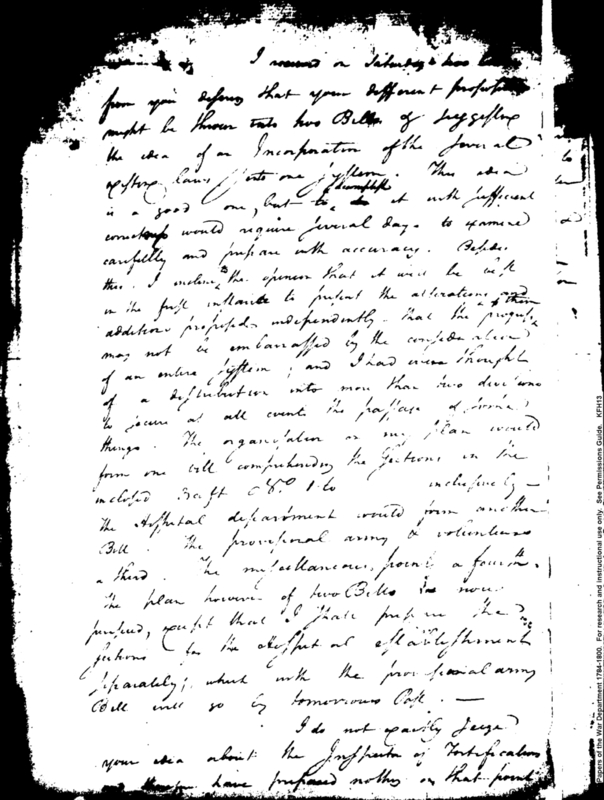 I received on Saturday two
from you desiring that your different propositions
might be thrown into two Bills & suggesting
the idea of an Incorporation of the several
existing laws into one system. This idea
is a good one, but to accomplish it with sufficient
correctness would require several days to examine
carefully and prepare with accuracy. Besides
this. I incline to the opinion that it will be best
in the first instance to present the alterations and
additions proposed independently. that the progress of them
may not be embarrassed by the consideration
of an entire system; and I had even thought
of a distribution into more than two divisions
to secure at all events the passage of some
things. The organisation on my plan would
form one bill comprehending the sections in the
inclosed Draft No. 1 to inclusively —
The Hospital department would form another
Bill. The provisional army & volunteers
a third. The miscellaneous points a fourth.
The plan however of two Bills is now
pursued, except that I shall prepare the
sections for the Hospital establishment
separately; which with the provisional army
Bill will go by tomorrows Post. —
I do not exactly seize
your idea about the Inspector of Fortifications
have prepared nothing on that point
Papers of the War Department 1784-1800. For research and instructional use only. See Permissions Guide. KFH13